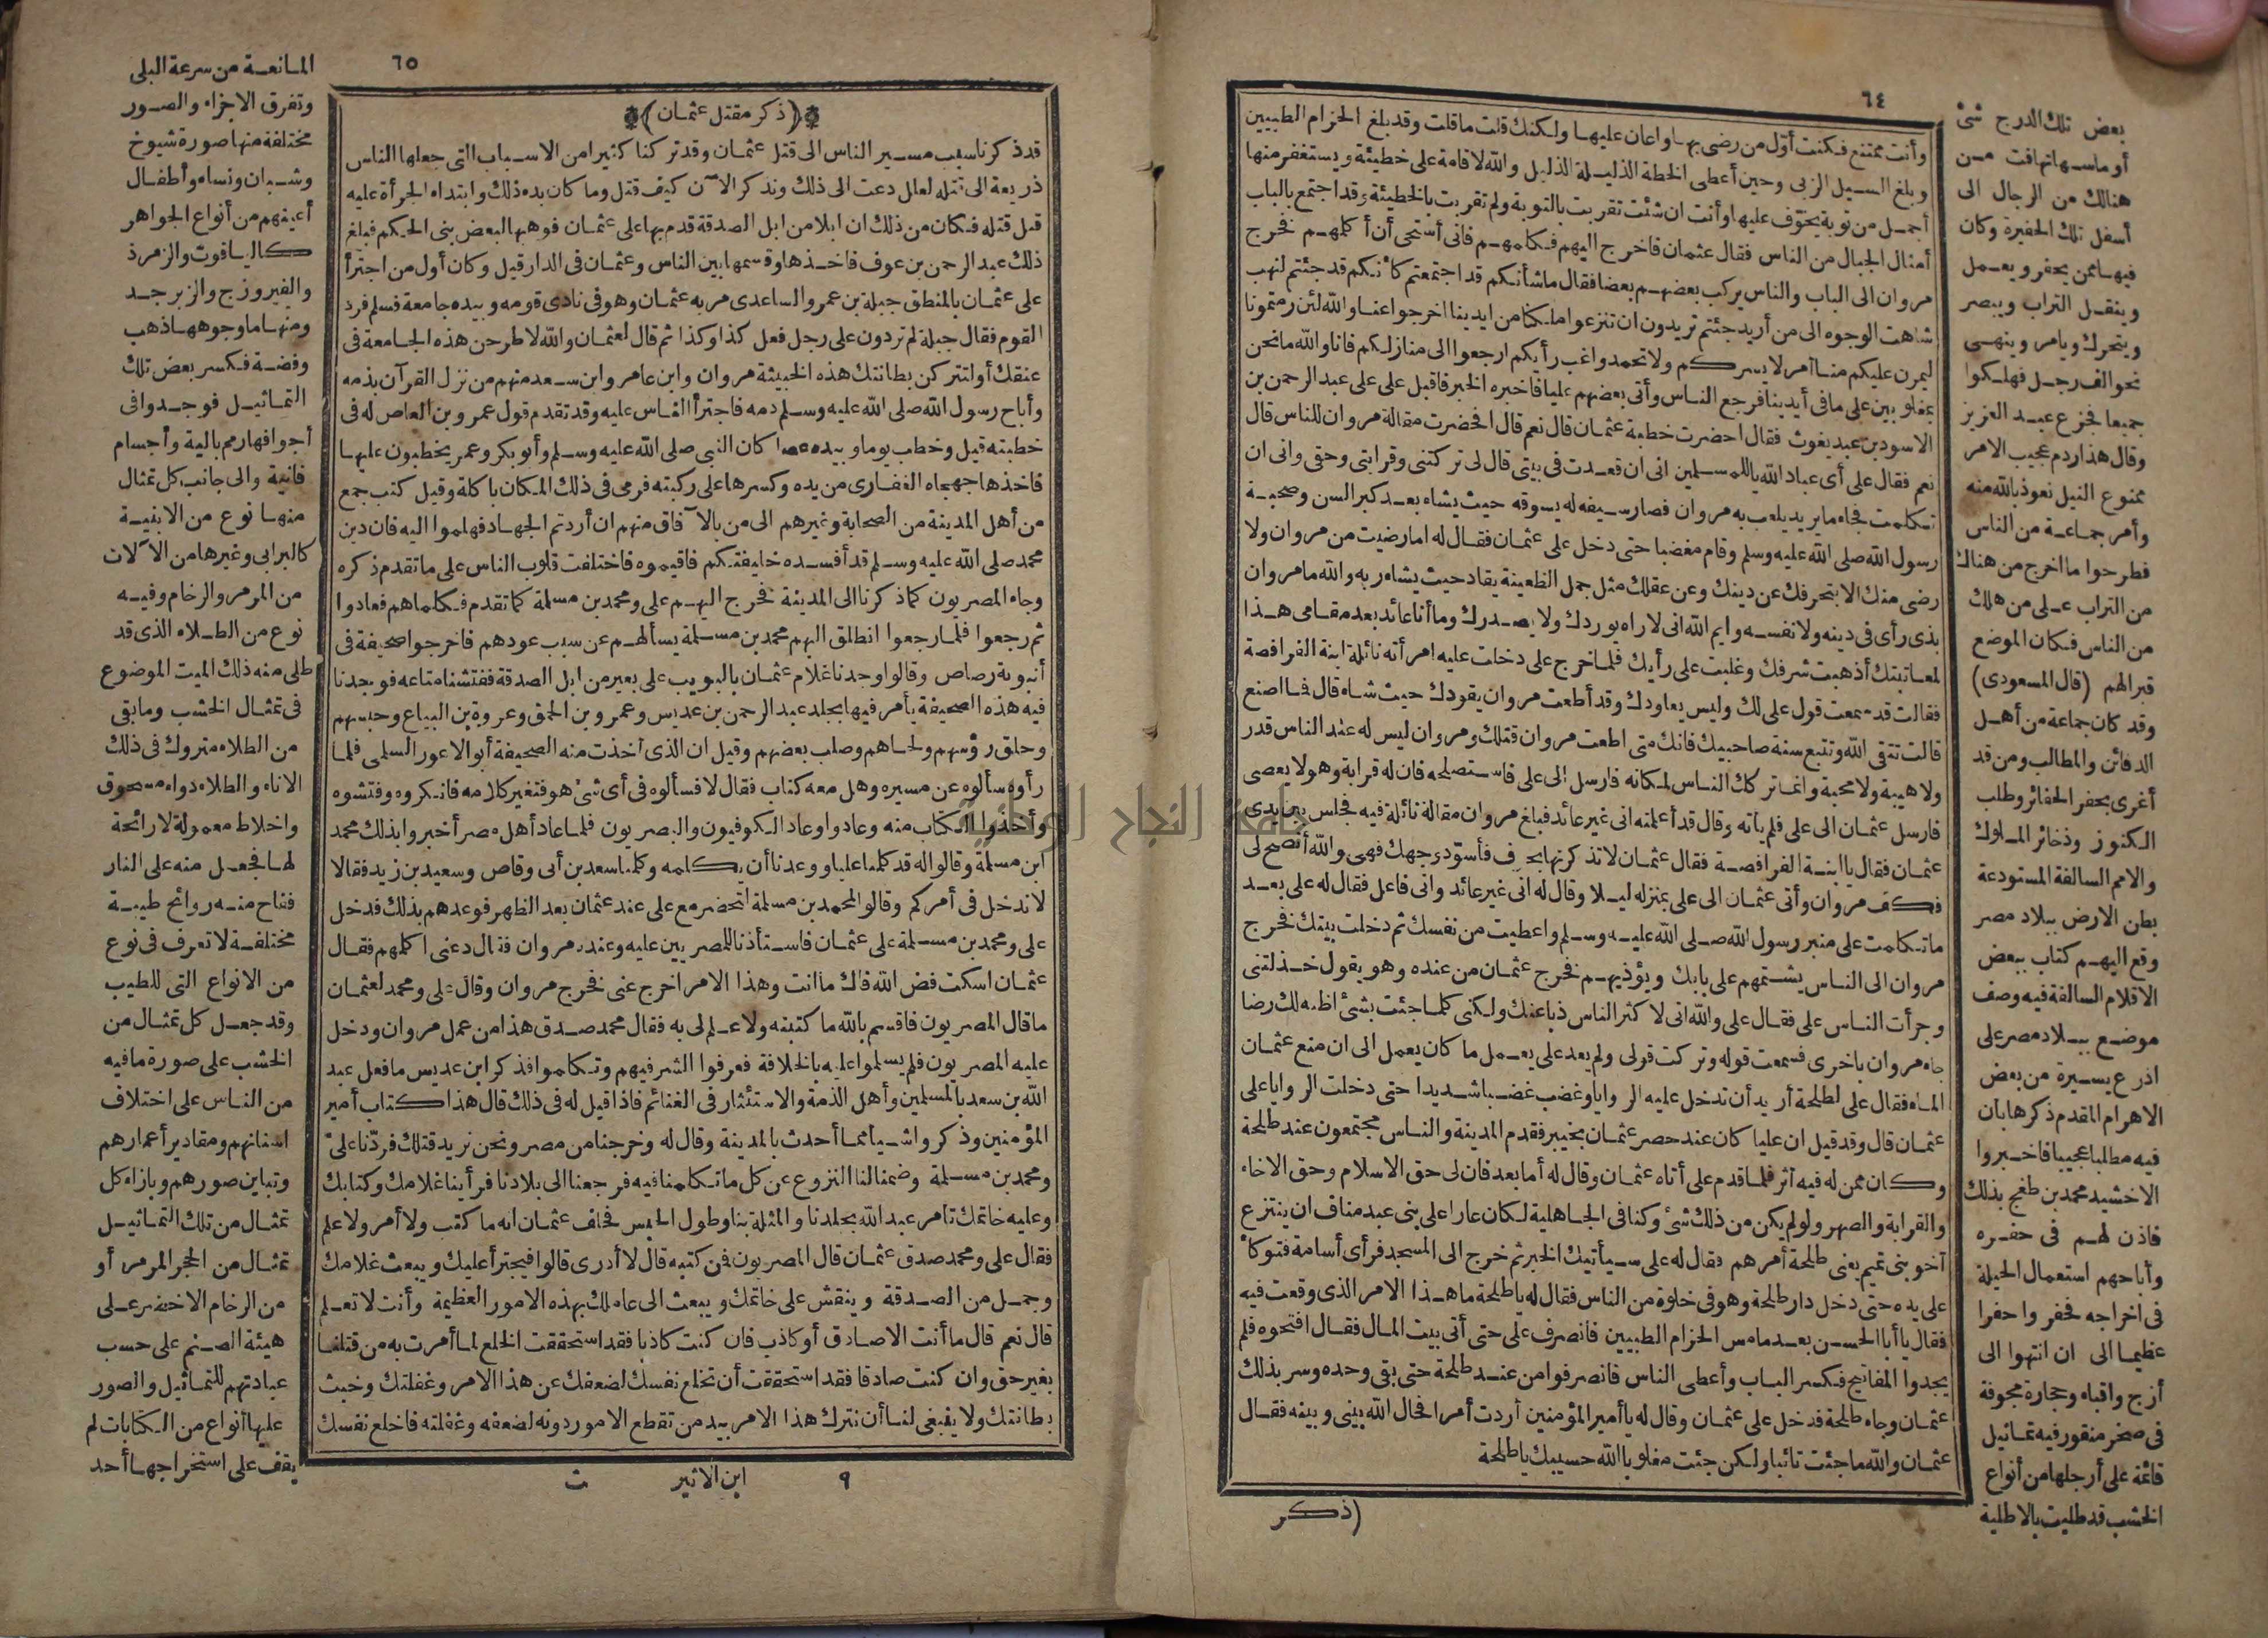 ٦٤
وأنت ممتنع فكنت أوّل من رضى بهاواعان عليها ولكنك قلت ماقلت وقدبلغ الحزام الطبيين
وبلغ السيل الزبى وحين أعطى الخطة الذليلة الذليل والله لاقامة على خطيئة ويستغفرمنها
أجمل من توبة يخوّف عليها وأنت ان شئت تقربت بالتوبة ولم تقربت بالخطيئة وقد اجتمع بالباب
أمثال الجبال من الناس فقال عثمان فاخرج اليهم فكلمهم فانى أستحى أن أكلمهم فخرج
مروان الى الباب والناس يركب بعضهم بعضا فقال ماشأنكم قد اجتمعتم كأنكم قدجئتم لنهب
شاهت الوجوه الى من أريد جئتم تريدون ان تنزعوا ملكنا من ايدينا اخرجوا عنا والله لئن رمتمونا
ليمرن عليكم منا أمر لايسركم ولاتحمدواغب رأيكم ارجعوا الى منازلكم فانا والله مانحن
بمغلوبين على مافى أيدينا فرجع الناس وأتى بعضهم عليا فاخبره الخبر فاقبل على على عبد الرحمن بن
الاسود بن عبد يغوث فقال احضرت خطبة عثمان قال نعم قال افحضرت مقالة مروان للناس قال
نعم فقال على أى عباد الله ياللمسلمين انى ان قعدت فى بيتى قال لى تركتنى وقرابتى وحقى وانى ان
تكلمت فجاء مايريد يلعب به مروان فصار سيقه له يسوقه حيث يشاء بعد كبر السن وصحبة
رسول الله صلى الله عليه وسلم وقام مغضبا حتى دخل على عثمان فقال له امارضيت من مروان ولا
رضى منك الابتحرفك عن دينك وعن عقلك مثل جمل الظعينة يقاد حيث يشاء ربه والله مامروان
بذى رأى فى دينه ولانفسه وايم الله انى لاراه يوردك ولايصدرك وماأنا عائد بعد مقامى هذا
لمعاتبتك أذهبت شرفك وغلبت على رأيك فلماخرج على دخلت عليه امرأته نائلة ابنة الفرافصة
فقالت قد سمعت قول على لك وليس يعاودك وقد أطعت مروان يقودك حيث شاء قال فااصنع
قالت تتقى الله وتتبع سنة صاحبيك فانك متى اطعت مروان قتلك ومروان ليس له عند الناس قدر
ولاهيبة ولامحبة وانما تركك الناس لمكانه فارسل الى على فاستصلحه فان له قرابة وهو لايعصى
فارسل عثمان الى على فلم يأته وقال قد أعلمته انى غير عائد فبلغ مروان مقالة نائلة فيه فجلس بين يدى
عثمان فقال ياابنة الفرافصة فقال عثمان لاتذكرنها بحرف فأسوّد وجهك فهى والله أنصح لى
فكف مروان وأتى عثمان الى على بمنزله ليلا وقال له انى غير عائد وانى فاعل فقال له على بعد
ماتكلمت على منبر رسول الله صلى الله عليه وسلم واعطيت من نفسك ثم دخلت بيتك فخرج
مروان الى الناس يشتمهم على بابك ويؤذيهم فخرج عثمان من عنده وهو يقول خذلتنى
وجرأت الناس على فقال على والله انى لاكثر الناس ذباعنك ولكنى كلماجئت بشئ اظنه لك رضا
جاء مروان باخرى فسمعت قوله وتركت قولى ولم يعد على يعمل ما كان يعمل الى ان منع عثمان
الماء فقال على لطلحة أريد أن تدخل عليه الروايا وغضب غضبا شديدا حتى دخلت الروايا على
عثمان قال وقد قيل ان عليا كان عند حصر عثمان بخيبر فقدم المدينة والناس مجتمعون عند طلحة
وكان ممن له فيه أثر فلما قدم على أتاه عثمان وقال له أما بعد فان لى حق الاسلام وحق الاخاء
والقرابة والصهر ولولم يكن من ذلك شئ وكنا فى الجاهلية لكان عارا على بنى عبد مناف ان ينتزع
أخو بنى تيم يعنى طلحة أمرهم فقال له على سيأتيك الخبر ثم خرج الى المسجد فرأى أسامة فتوكأ
على يده حتى دخل دار طلحة وهو فى خلوة من الناس فقال له ياطلحة ماهذا الامر الذى وقعت فيه
فقال ياأبا الحسن بعد مامس الحزام الطبيين فانصرف على حتى أتى بيت المال فقال افتحوه فلم
يجدوا المفاتيح فكسر الباب وأعطى الناس فانصرفوا من عند طلحة حتى بقى وحده وسر بذلك
عثمان وجاء طلحة فدخل على عثمان وقال له ياأمير المؤمنين أردت أمرا فحال الله بينى وبينه فقال
عثمان والله ماجئت تائبا ولكن جئت مغلوبا الله حسيبك ياطلحة
(ذكر
بعض تلك الدرج شئ
أوماسهاتهافت من
هنالك من الرجال الى
أسفل تلك الحفيرة وكان
فيها ممن يحفر ويعمل
وينقل التراب ويبصر
ويتحرك ويأمر وينهى
نحو الف رجل فهلكوا
جميعا فجزع عبد العزيز
وقال هذا ردم عجيب الامر
ممنوع النيل نعوذ بالله منه
وأمر جماعة من الناس
فطرحوا مااخرج من هناك
من التراب على من هلك
من الناس فكان الموضع
قبرالهم (قال المسعودى)
وقد كان جماعة من أهل
الدفائن والمطالب ومن قد
أغرى بحفر الحفائر وطلب
الكنوز وذخائر الملوك
والامم السالفة المستودعة
بطن الارض ببلاد مصر
وقع اليهم كتاب ببعض
الاقلام السالفة فيه وصف
موضع ببلاد مصر على
اذرع يسيرة من بعض
الاهرام المقدم ذكرها بأن
فيه مطلبا عجيبا فاخبروا
الاخشيد محمد بن طغج بذلك
فاذن لهم فى حفره
وأباحهم استعمال الحيلة
فى اخراجه فحفروا حفرا
عظيما الى ان انتهوا الى
أزج واقباء وحجارة مجوفة
فى صخر منقور فيه تماثيل
قائمة على أرجلها من أنواع
الخشب قد طليت بالاطلية
٦٥
(ذكر مقتل عثمان)
قد ذكرنا سبب مسير الناس الى قتل عثمان وقد تركنا كثيرا من الاسباب التى جعلها الناس
ذريعة الى قتله لعلل دعت الى ذلك ونذكر الآن كيف قتل وما كان بدء ذلك وابتداء الجرأة عليه
قبل قتله فكان من ذلك ان ابلا من ابل الصدقة قدم بها على عثمان فوهبها لبعض بنى الحكم فبلغ
ذلك عبد الرحمن بن عوف فاخذها وقسمها بين الناس وعثمان فى الدار قيل وكان أول من اجترأ
على عثمان بالمنطق جبلة بن عمرو الساعدى مر به عثمان وهو فى نادى قومه وبيده جامعة فسلم فرد
القوم فقال جبلة لم تردون على رجل فعل كذا وكذا ثم قال لعثمان والله لاطرحن هذه الجامعة فى
عنقك أو لتتركن بطانتك هذه الخبيثة مروان وابن عامر وابن سعد منهم من نزل القرآن بذمه
وأباح رسول الله صلى الله عليه وسلم دمه فاجترأ الناس عليه وقد تقدم قول عمرو بن العاص له فى
خطبته قيل وخطب يوما وبيده عصا كان النبى صلى الله عليه وسلم وأبو بكر وعمر يخطبون عليها
فاخذها جهجاه الغفارى من يده وكسرها على ركبته فرمى فى ذلك المكان باكلة وقيل كتب جمع
من أهل المدينة من الصحابة وغيرهم الى من بالآفاق منهم ان أردتم الجهاد فهلموا اليه فان دين
محمد صلى الله عليه وسلم قد أفسده خليفتكم فاقيموه فاختلفت قلوب الناس على ماتقدم ذكره
وجاء المصريون كما ذكرنا الى المدينة فخرج اليهم على ومحمد بن مسلمة كما تقدم فكلماهم فعادوا
ثم رجعوا فلما رجعوا انطلق اليهم محمد بن مسلمة يسألهم عن سبب عودهم فاخرجوا صحيفة فى
أنبوبة رصاص وقالوا وجدنا غلام عثمان بالبويب على بعير من ابل الصدقة ففتشنا متاعه فوجدنا
فيه هذه الصحيفة يأمر فيها بجلد عبد الرحمن بن عديس وعمرو بن الحمق وعروة بن البياع وحبسهم
وحلق رؤسهم ولحاهم وصلب بعضهم وقيل ان الذى أخذت منه الصحيفة أبو الاعور السلمى فلما
رأوه سألوه عن مسيره وهل معه كتاب فقال لا فسألوه فى أى شئ هو فتغير كلامه فانكروه وفتشوه
وأخذوا الكتاب منه وعادوا وعاد الكوفيون والبصريون فلما عاد أهل مصر أخبروا بذلك محمد
ابن مسلمة وقالوا له قد كلمنا عليا ووعدنا أن يكلمه وكلمنا سعد بن أبى وقاص وسعيد بن زيد فقالا
لا ندخل فى أمركم وقالوا لمحمد بن مسلمة اتحضر مع على عند عثمان بعد الظهر فوعدهم بذلك فدخل
على ومحمد بن مسلمة على عثمان فاستأذنا للمصريين عليه وعنده مروان فقال دعنى اكلمهم فقال
عثمان اسكت فض الله فاك ماانت وهذا الامر اخرج عنى فخرج مروان وقال على ومحمد لعثمان
ماقال المصريون فاقسم بالله ماكتبته ولا علم لى به فقال محمد صدق هذا من عمل مروان ودخل
عليه المصريون فلم يسلموا عليه بالخلافة فعرفوا الشر فيهم وتكلموا فذكر ابن عديس مافعل عبد
الله بن سعد بالمسلمين وأهل الذمة والاستئثار فى الغنائم فاذا قيل له فى ذلك قال هذا كتاب أمير
المؤمنين وذكروا شيأ مما أحدث بالمدينة وقال له وخرجنا من مصر ونحن نريد قتلك فردّنا علىّ
ومحمد بن مسلمة وضمنا لنا النزوع عن كل ماتكلمنا فيه فرجعنا الى بلادنا فرأينا غلامك وكتابك
وعليه خاتمك تأمر عبد الله بجلدنا والمثلة بنا وطول الحبس فحلف عثمان انه ما كتب ولا أمر ولا علم
فقال على ومحمد صدق عثمان قال المصريون فمن كتبه قال لا أدرى قالوا فيجترأ عليك ويبعث غلامك
وجمل من الصدقة وينقش على خاتمك ويبعث الى عاملك بهذه الامور العظيمة وأنت لاتعلم
قال نعم قال ماأنت الاصادق أوكاذب فان كنت كاذبا فقد استحققت الخلع لما أمرت به من قتلنا
بغير حق وان كنت صادقا فقد استحققت أن تخلع نفسك لضعفك عن هذا الامر وغفلتك وخبث
بطانتك ولا ينبغى لنا أن نترك هذا الامر بيد من تقطع الامور دونه لضعفه وغفلته فاخلع نفسك
٩ ابن الاثير ث
المانعة من سرعة البلى
وتفرق الاجزاء والصور
مختلفة منها صورة شيوخ
وشبان ونساء وأطفال
أعينهم من أنواع الجواهر
كالياقوت والزمرذ
والفيروزج والزبرجد
ومنها ماوجوهها ذهب
وفضة فكسر بعض تلك
التماثيل فوجدوا فى
أجوافها رمما بالية وأجسام
فانية والى جانب كل تمثال
منها نوع من الابنية
كالبرابى وغيرها من الآلات
من المرمر والرخام وفيه
نوع من الطلاء الذى قد
طلى منه ذلك الميت الموضوع
فى تمثال الخشب ومابقى
من الطلاء متروك فى ذلك
الاناء والطلاء دواء مسحوق
واخلاط معمولة لا رائحة
لها فجعل منه على النار
ففاح منه روائح طيبة
مختلفة لاتعرف فى نوع
من الانواع التى للطيب
وقد جعل كل تمثال من
الخشب على صورة مافيه
من الناس على اختلاف
اسنانهم ومقادير أعمارهم
وتباين صورهم وبازاء كل
تمثال من تلك التماثيل
تمثال من الحجر المرمر أو
من الرخام الاخضر على
هيئة الصنم على حسب
عبادتهم للتماثيل والصور
عليها أنواع من الكتابات لم
يقف على استخراجها أحد
جامعة النجاح الوطنية